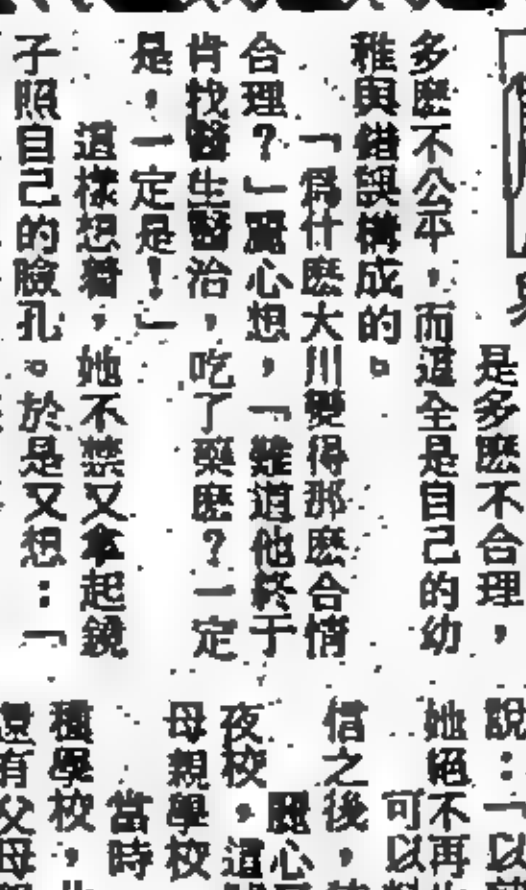 是多麽不合理，
多麽不公平，而這全是自己的幼
稚與錯誤構成的。
「爲什麽大川變得那麽合情
合理？」麗心想，「難道他終于
肯找醫生醫治，吃了藥麽？一定
是，一定是！」
這樣想着，她不禁又拿起鏡
子照自己的臉孔。於是又想：「
說：「以
她絕不再
可以
信之後，
麗心
夜校，這
母親學校
當時
種學校，
還有父母